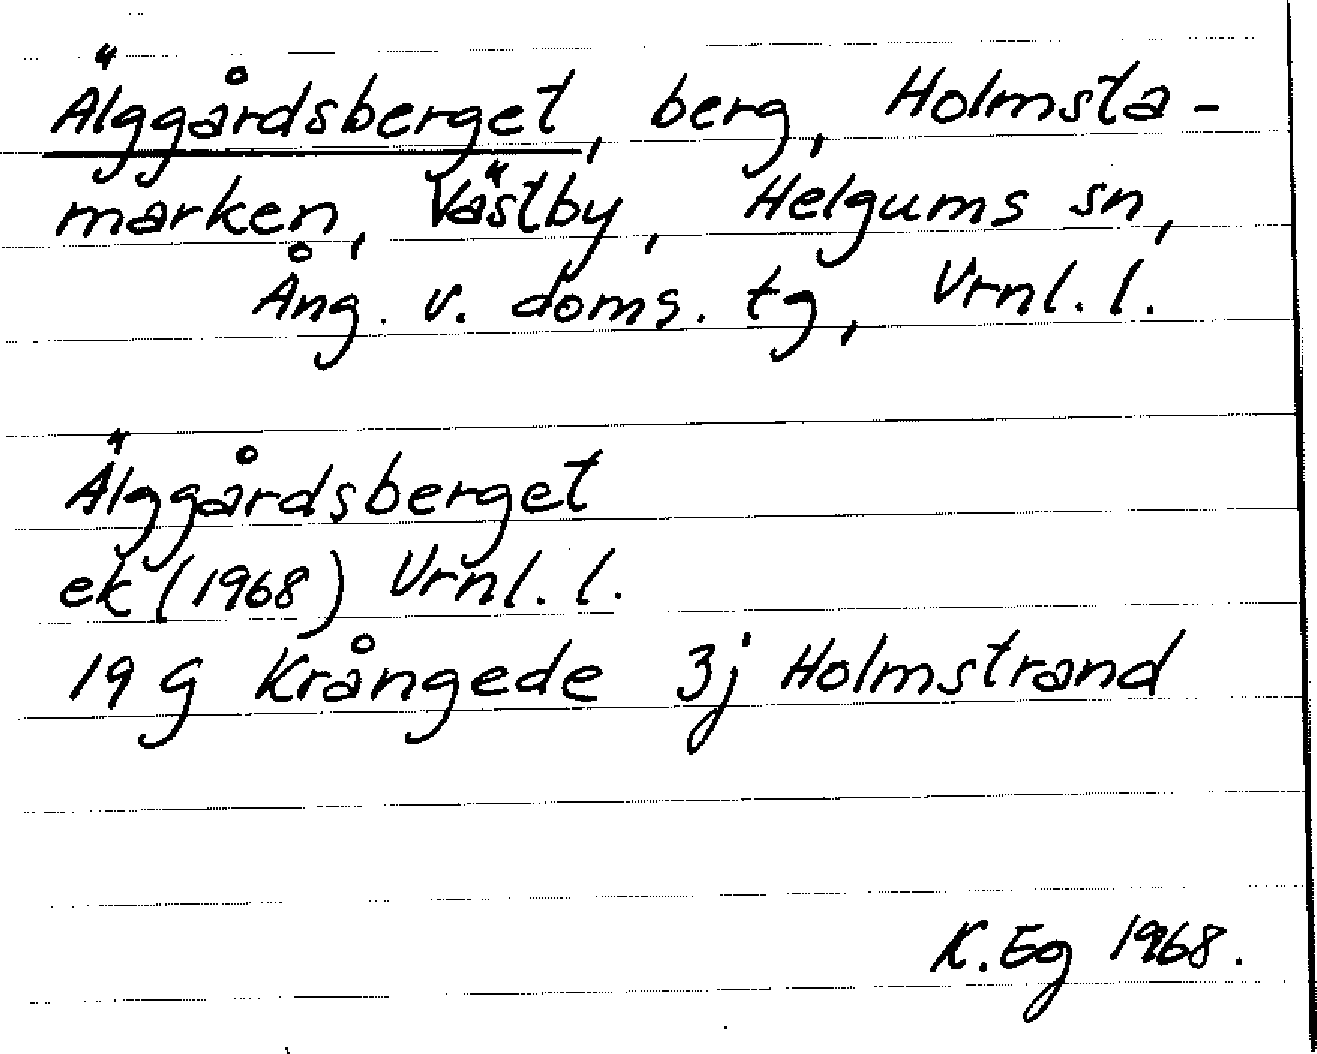 Älggårdsberget, berg, Holmsta-
marken, Västby, Helgums sn,
Ång. v. doms. tg, Vrnl. l.
Älggårdsberget
ek (1968) Vrnl. l.
19 G Krångede 3j Holmstrand
K. Eg 1968.